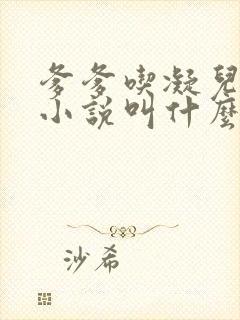 爹爹喫凝兒
小說叫什麼
沙希